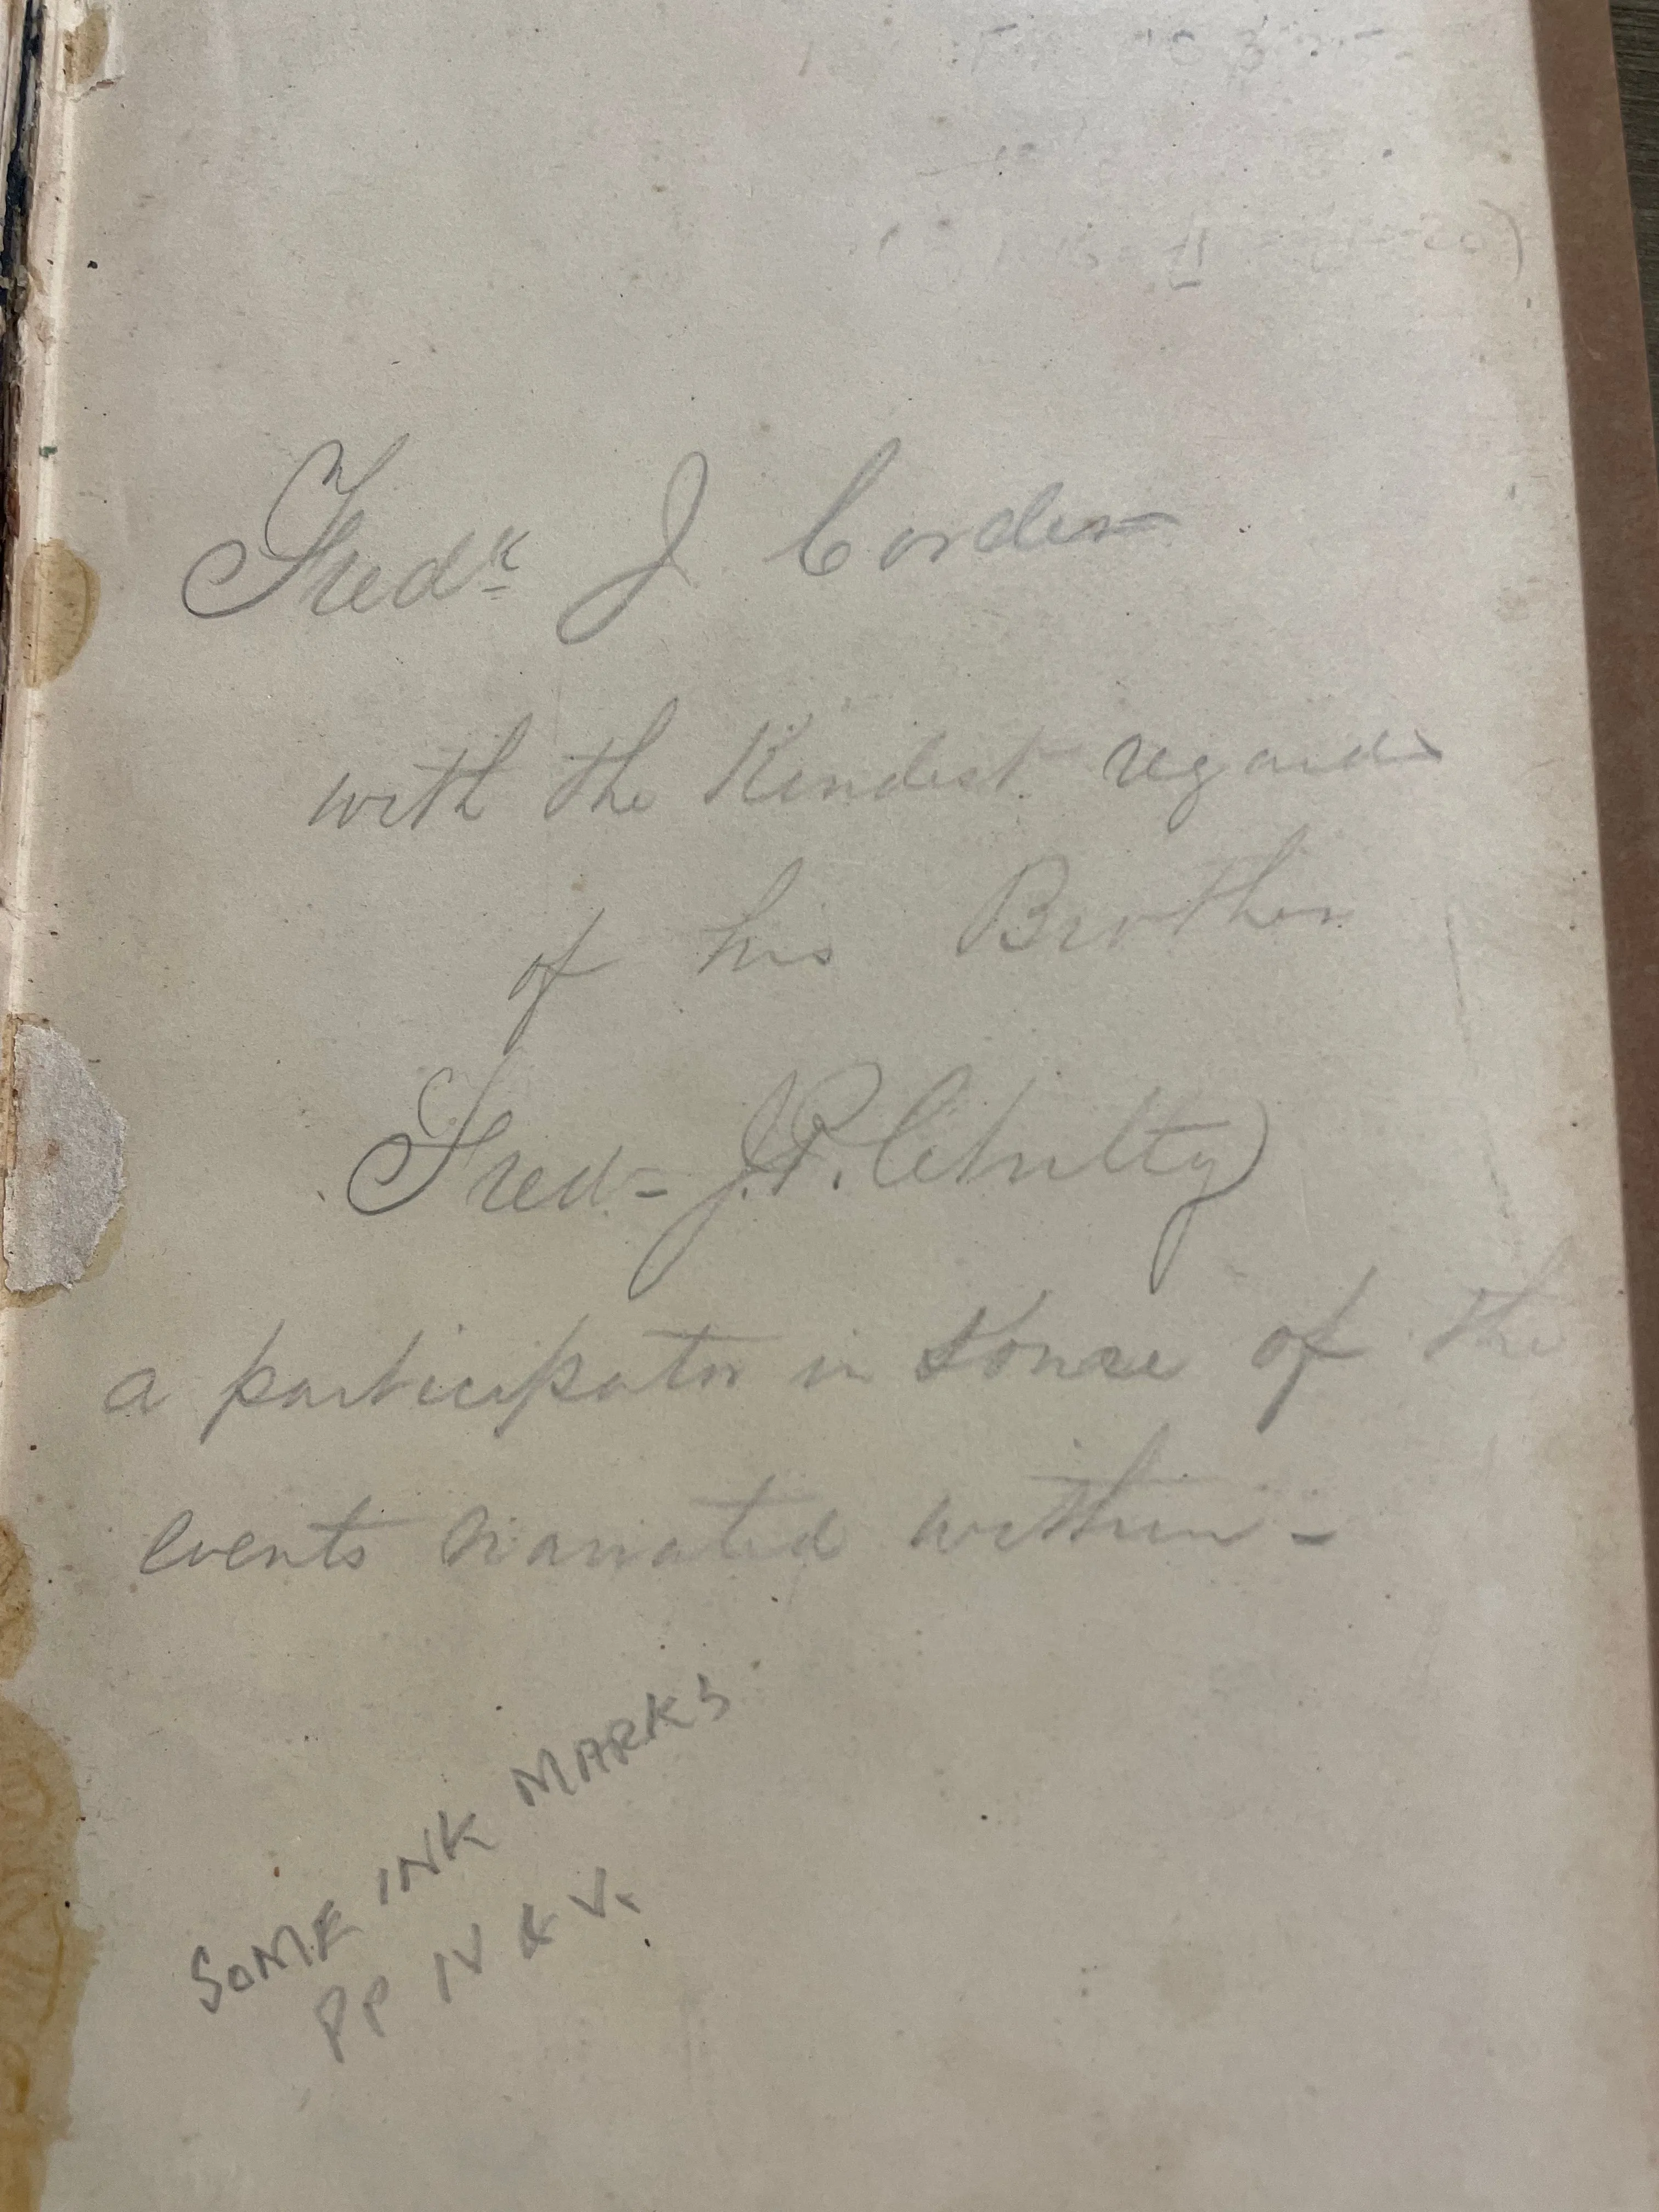 Fredk J Corder
with the Kindest regards
of his Brother
Fred- J.P. Chutty
a participator in some of the
events narrated within -
SOME INK MARKS
PP IV & V.